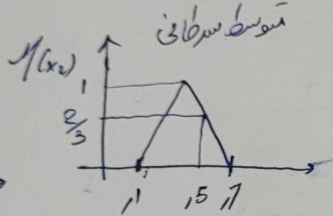 متوسط سرطانی
μ(x₂)
1
2/3
,1 ,5 ,7